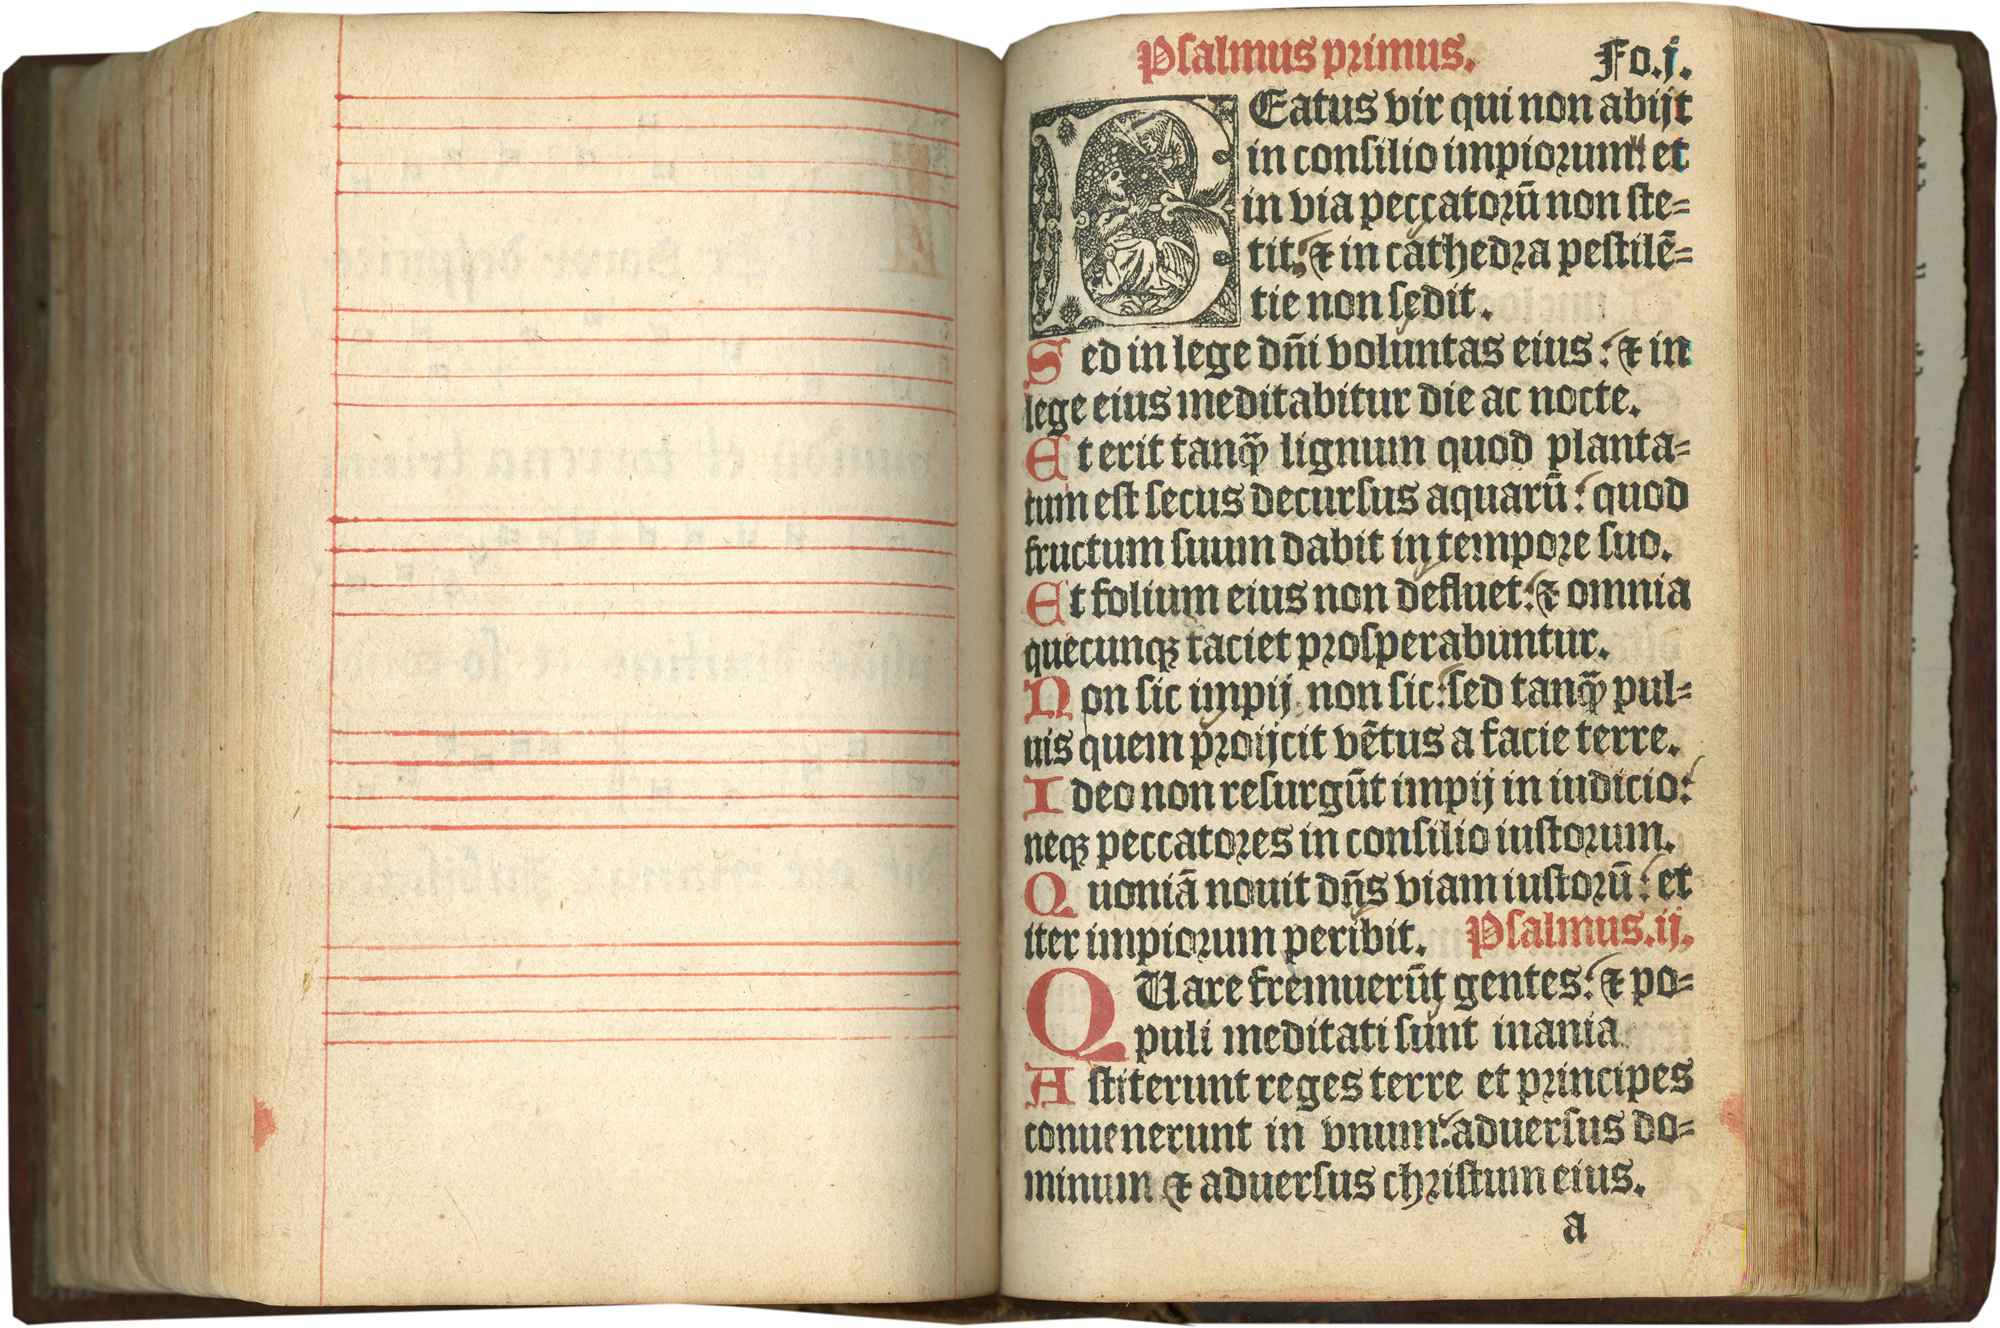 Psalmus primus. Fo.j.
BEatus vir qui non abijt
in consilio impiorum: et
in via peccatorū non ste=
tit: & in cathedra pestilē=
tie non sedit.
Sed in lege dn̄i voluntas eius: & in
lege eius meditabitur die ac nocte.
Et erit tanqȝ lignum quod planta=
tum est secus decursus aquarū: quod
fructum suum dabit in tempore suo.
Et folium eius non defluet: & omnia
quecunqȝ faciet prosperabuntur.
Non sic impij non sic: sed tanqȝ pul=
uis quem proijcit vētus a facie terre.
Ideo non resurgūt impij in iudicio:
neqȝ peccatores in consilio iustorum.
Quoniā nouit dn̄s viam iustorū: et
iter impiorum peribit. Psalmus.ij.
QUare fremuerūt gentes: & po=
puli meditati sunt inania
Astiterunt reges terre et principes
conuenerunt in vnum: aduersus do=
minum & aduersus christum eius.
a